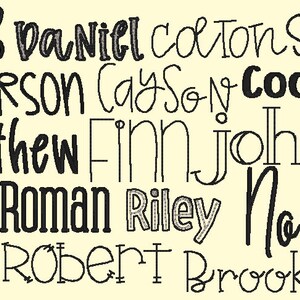 DaNiel colton
RSON Cayson Coo
thew Finn joh
Roman Riley No
Robert Brook